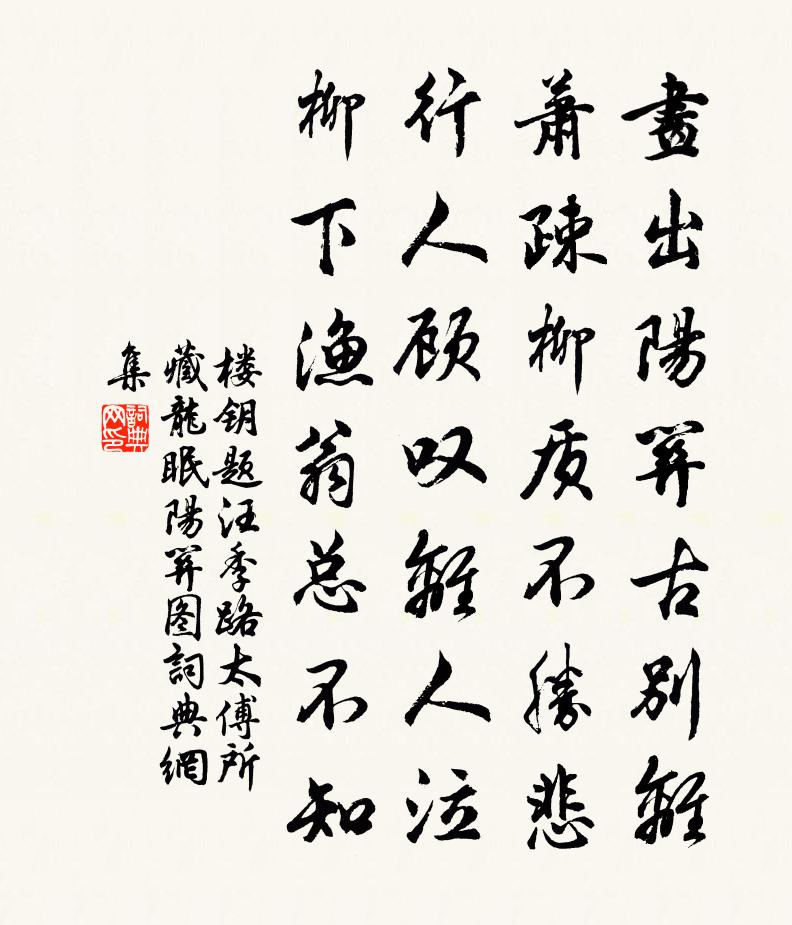 畫出陽關古別離
蕭疎柳质不勝悲
行人顾叹離人泣
柳下渔翁总不知
楼钥题汪季路太傅所
藏龍眠陽關图詞典網
集
詞典网印